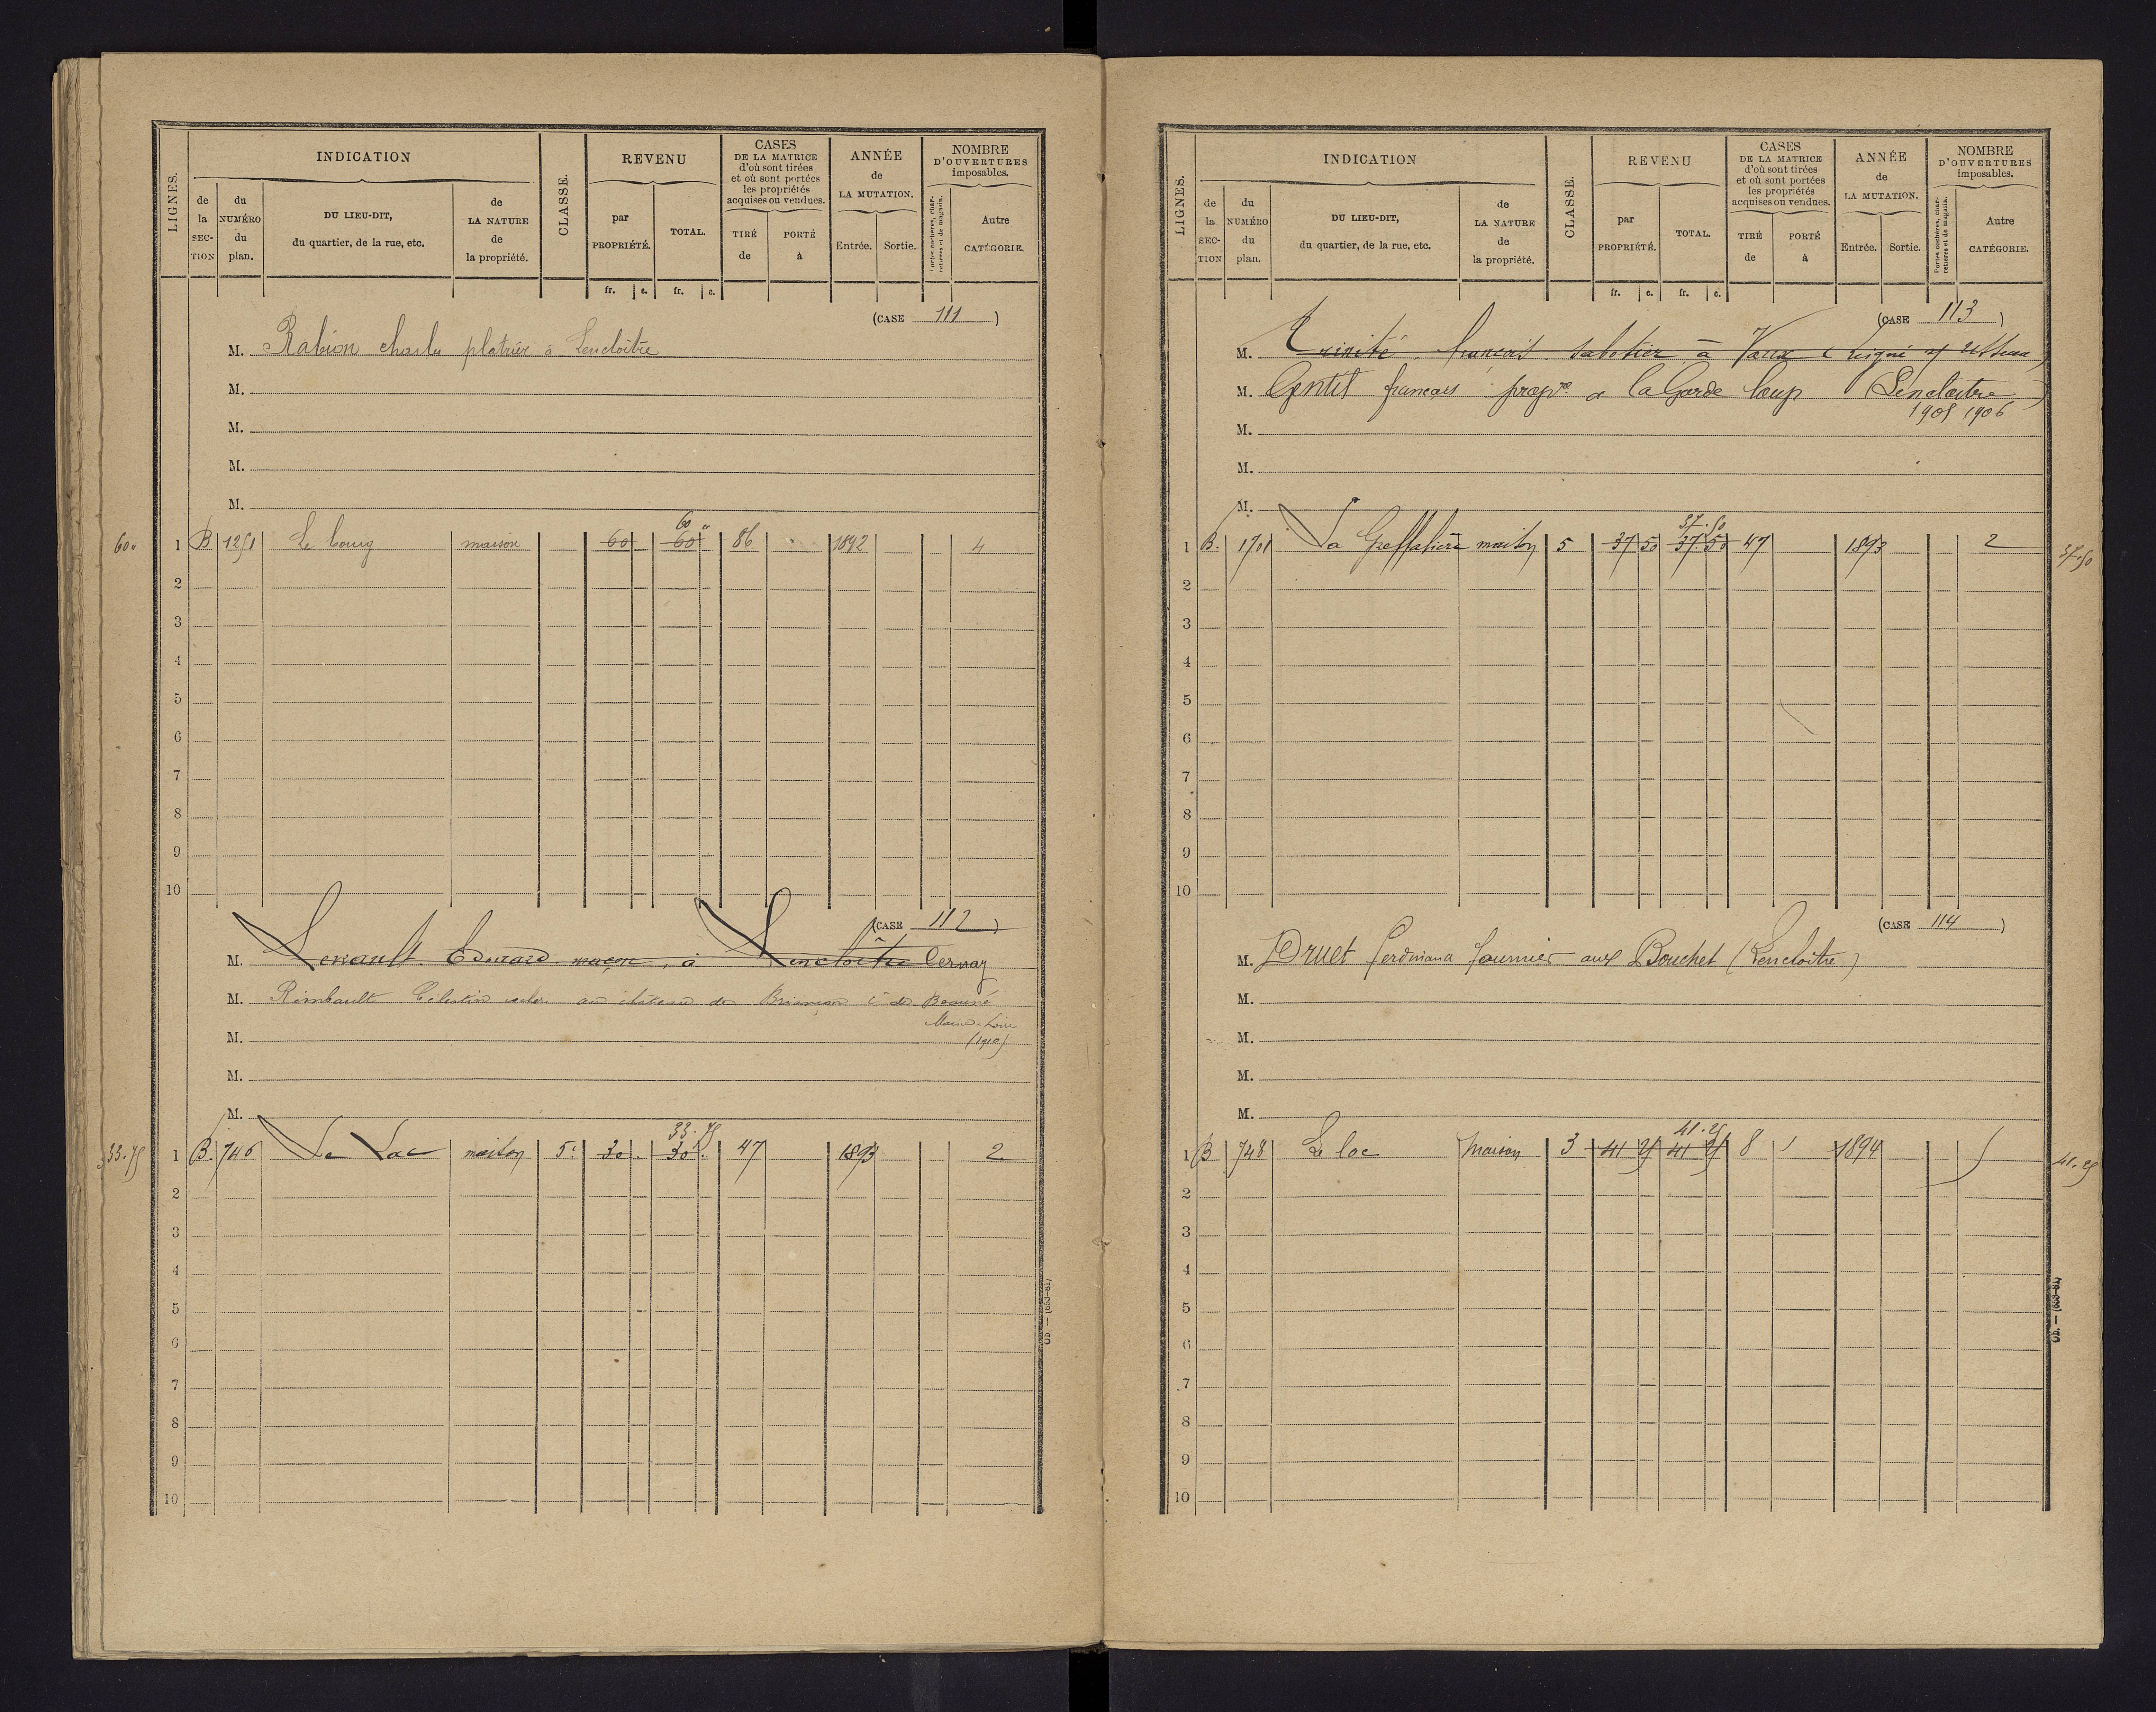 LIGNES.
INDICATION
de la SECTION
du NUMÉRO du plan.
DU LIEU-DIT, du quartier, de la rue, etc.
de LA NATURE de la propriété.
CLASSE.
REVENU
par PROPRIÉTÉ.
TOTAL.
fr. c. fr. c.
CASES DE LA MATRICE d'où sont tirées et où sont portées les propriétés acquises ou vendues.
TIRÉ de
PORTÉ à
ANNÉE de LA MUTATION.
Entrée. Sortie.
NOMBRE D'OUVERTURES imposables.
Portes cochères, charretières et de magasin.
Autre CATÉGORIE.
(CASE 111)
M. Rabion charles platrier à Lencloître
M.
M.
M.
M.
60 "
1 B 1251 Le bourg maison 60 60 86 1892 4
60 "
2
3
4
5
6
7
8
9
10
(CASE 112)
M. Édouard maçon, à Lencloître Cernay
M. Rimbault Célestin au château de Briançon cne de Beauné
Maine-Loire
(1910)
M.
M.
M.
33.75
33.75
1 B. 746 Le Lac maison 5e 30 30 47 1893 2
2
3
4
5
6
7
8
9
10
Cb. — (633-81)
LIGNES.
INDICATION
de la SECTION
du NUMÉRO du plan.
DU LIEU-DIT, du quartier, de la rue, etc.
de LA NATURE de la propriété.
CLASSE.
REVENU
par PROPRIÉTÉ.
TOTAL.
fr. c. fr. c.
CASES DE LA MATRICE d'où sont tirées et où sont portées les propriétés acquises ou vendues.
TIRÉ de
PORTÉ à
ANNÉE de LA MUTATION.
Entrée. Sortie.
NOMBRE D'OUVERTURES imposables.
Portes cochères, charretières et de magasin.
Autre CATÉGORIE.
(CASE 113)
M. Trinité françois sabotier à Vaux
M. Gentil francois propre a la Garde loup (Lencloitre)
1905 1906
M.
M.
M.
37.50
1 B. 1701 La Greffalière maison 5 37 50 37.50 47 1893 2
37.50
2
3
4
5
6
7
8
9
10
(CASE 114)
M. Druet Ferdinand fournier aux Bouchet (Lencloitre)
M.
M.
M.
M.
41.25
1 B 748 Le lac Maison 3 41 25 41 25 8 1894
41.25
2
3
4
5
6
7
8
9
10
Cb. — (633-81)